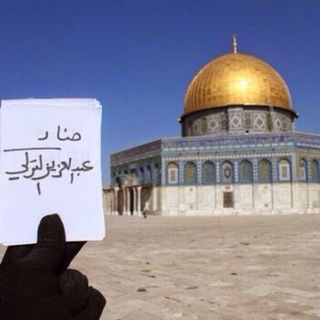 منار
عبدالعزيز التركي